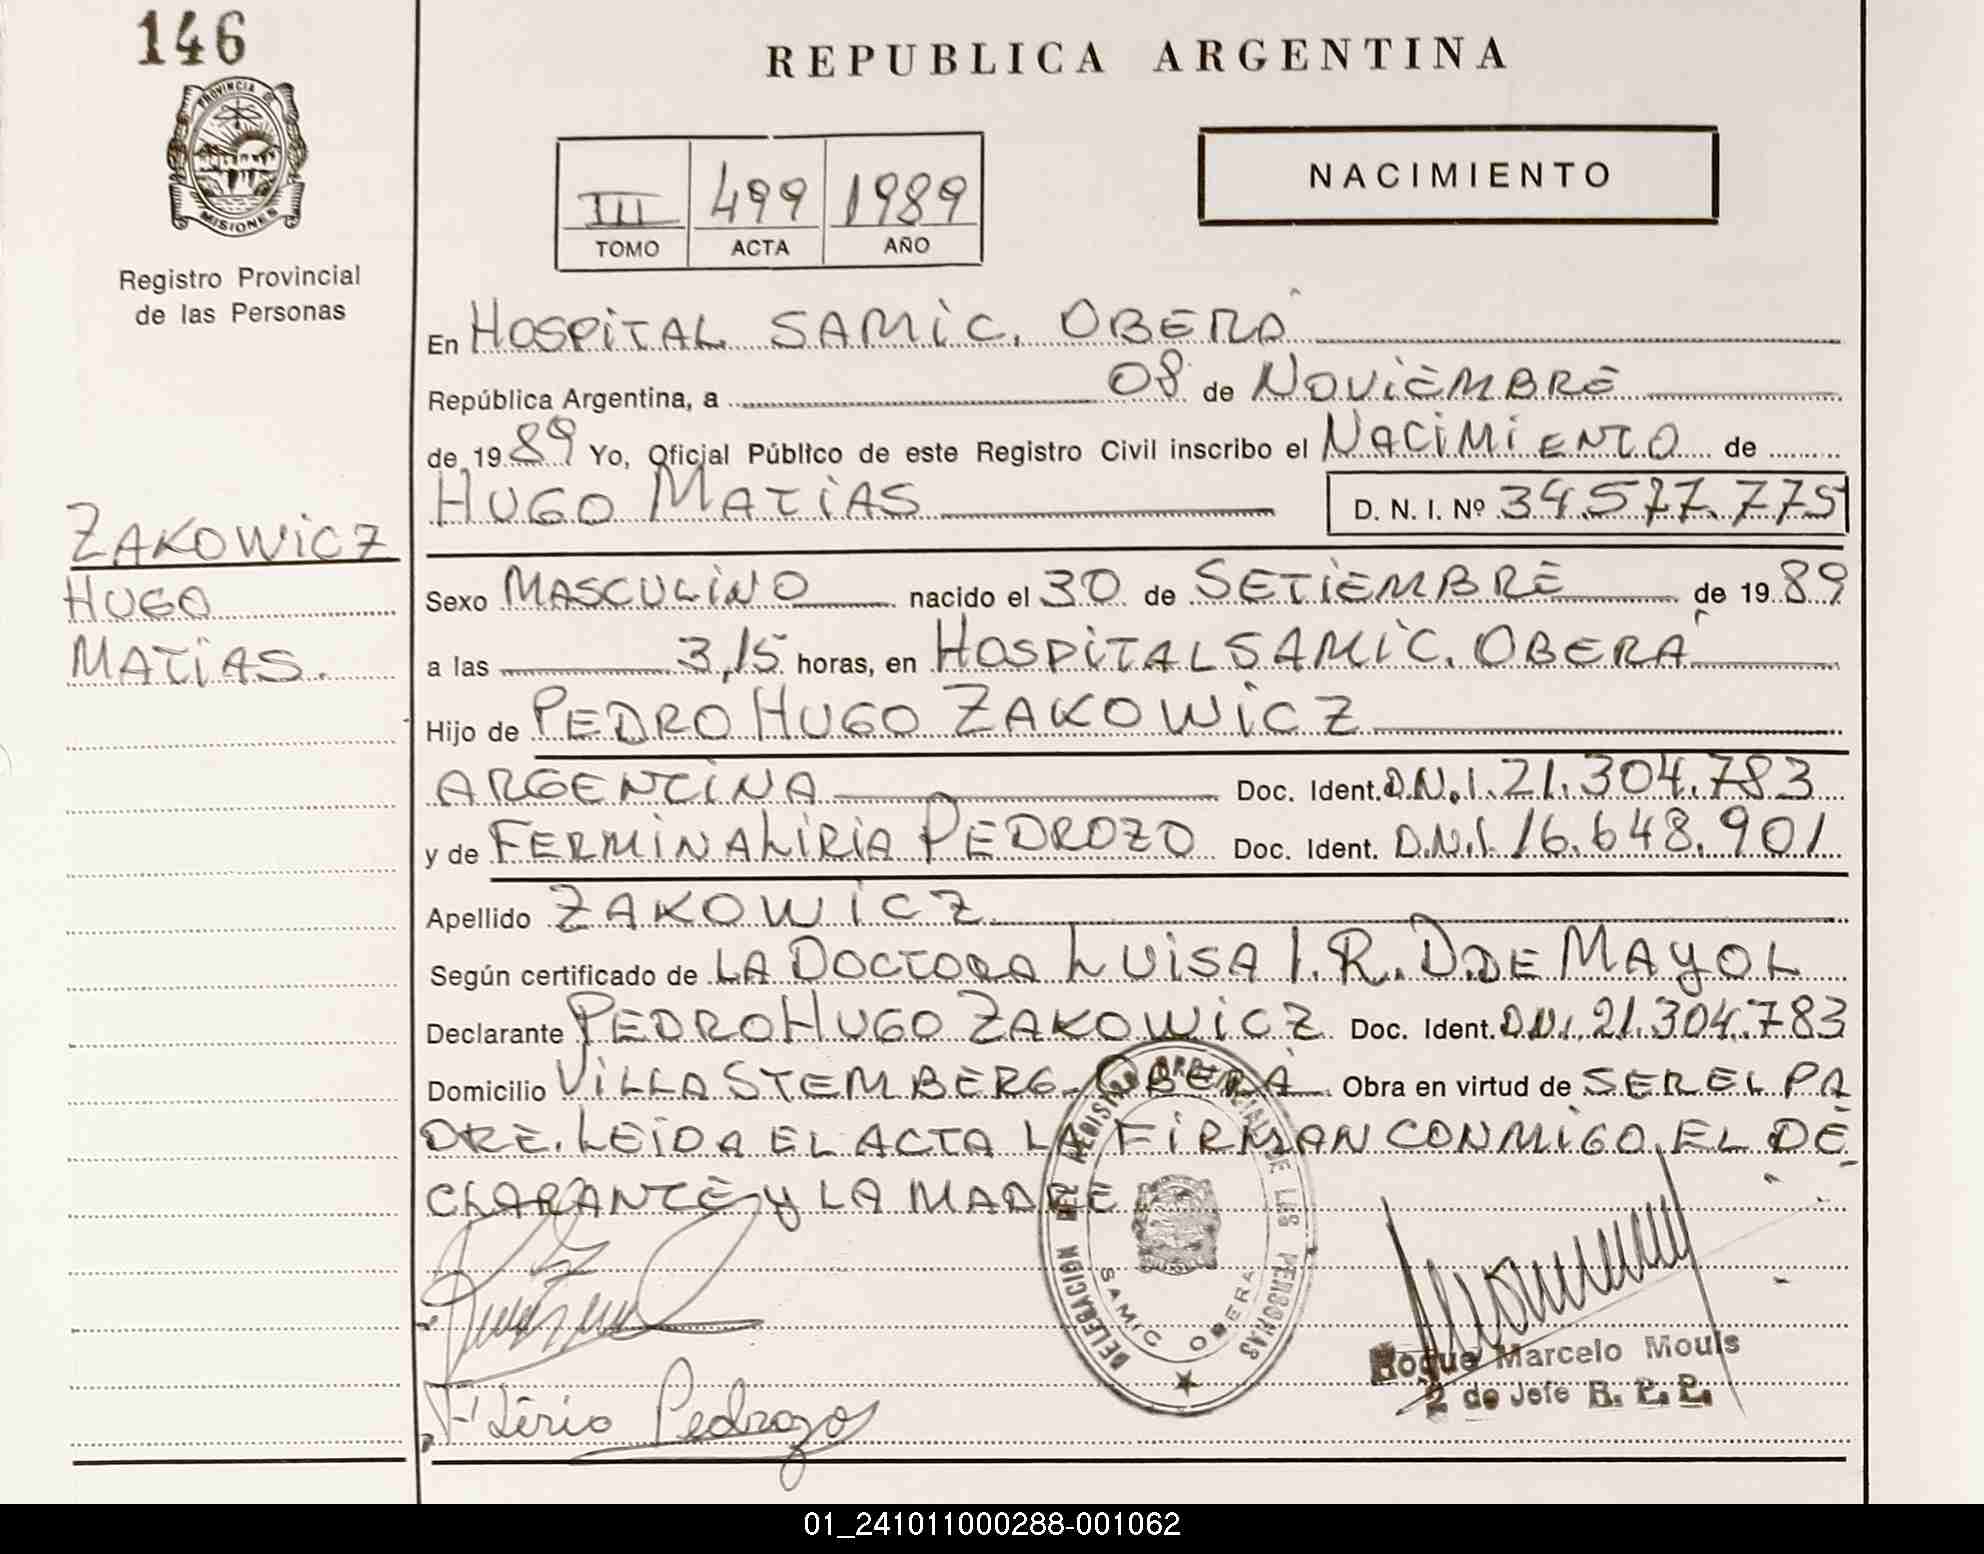 146
REPUBLICA ARGENTINA
PROVINCIA DE
MISIONES
Registro Provincial
de las Personas
III 499 1989
TOMO ACTA AÑO
NACIMIENTO
En HOSPITAL SAMIC. OBERÁ
República Argentina, a 08 de NOVIEMBRE
de 1989 Yo, Oficial Público de este Registro Civil inscribo el NACIMIENTO de
HUGO MATIAS D. N. I. Nº 34.577.775
ZAKOWICZ
HUGO
MATIAS.
Sexo MASCULINO nacido el 30 de SETIEMBRE de 1989
a las 3,15 horas, en HOSPITAL SAMIC. OBERÁ
Hijo de PEDRO HUGO ZAKOWICZ
ARGENTINA Doc. Ident. D.N.I. 21.304.783
y de FERMINA LIRIA PEDROZO Doc. Ident. D.N.I. 16.648.901
Apellido ZAKOWICZ
Según certificado de LA DOCTORA LUISA I. R. D. DE MAYOL
Declarante PEDRO HUGO ZAKOWICZ Doc. Ident. D.N.I. 21.304.783
Domicilio VILLA STEMBERG - OBERÁ Obra en virtud de SER EL PA
DRE. LEIDA EL ACTA LA FIRMAN CONMIGO, EL DE
CLARANTE Y LA MADRE
DELEGACION DEL REGISTRO PROVINCIAL DE LAS PERSONAS
SAMIC OBERA
Roque Marcelo Mouls
2 do Jefe R. P. P.
F Lirio Pedrozo
01_241011000288-001062